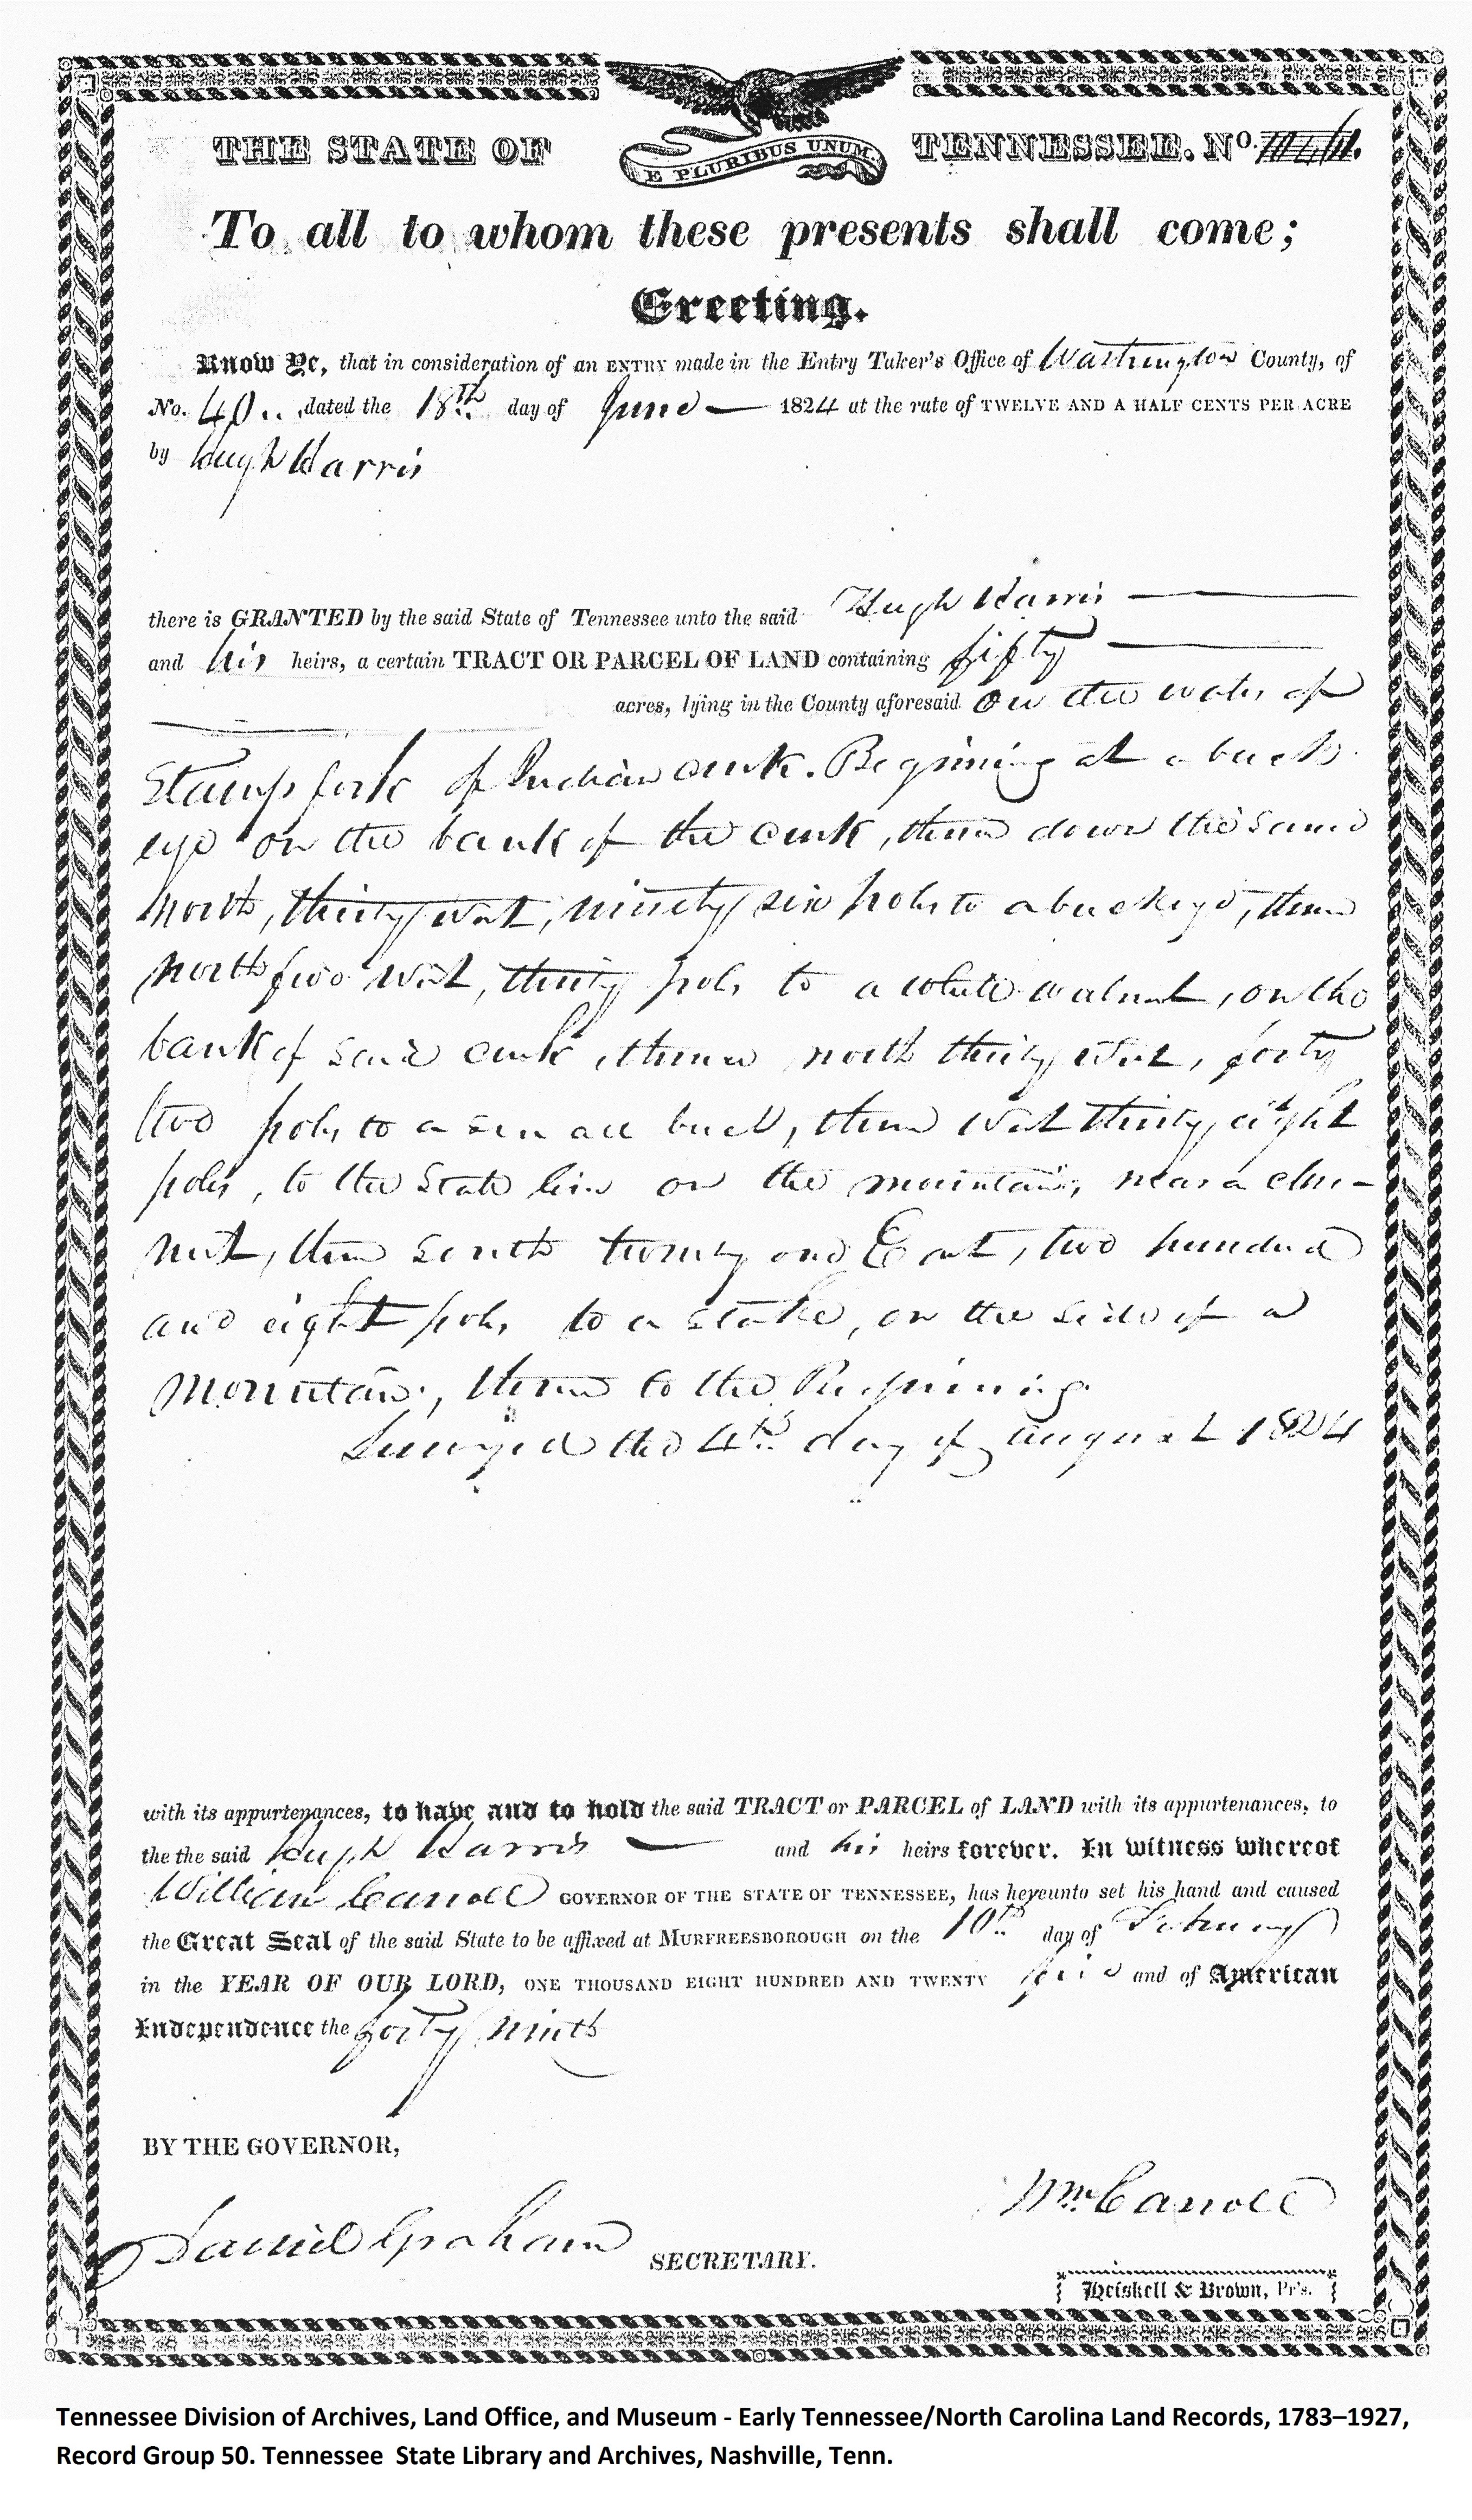 THE STATE OF TENNESSEE. No.
E PLURIBUS UNUM.
To all to whom these presents shall come;
Greeting.
Know Ye, that in consideration of an ENTRY made in the Entry Taker's Office of Washington County, of
No. 40 .. dated the 18th day of June — 1824 at the rate of TWELVE AND A HALF CENTS PER ACRE
by Hugh Harris
there is GRANTED by the said State of Tennessee unto the said Hugh Harris —
and his heirs, a certain TRACT OR PARCEL OF LAND containing fifty —
acres, lying in the County aforesaid on the waters of
Stamp fork of Indian creek. Beginning at a buck
eye on the bank of the creek, thence down the same
north, thirty west, ninety six poles to a buckeye, thence
north five west, thirty poles to a white walnut, on the
bank of said creek, thence north thirty west, forty
two poles to a small buck, thence west thirty eight
poles, to the State line on the mountain, near a ches-
nut, thence South twenty one East, two hundred
and eight poles to a stake, on the side of a
mountain, thence to the Beginning.
Surveyed the 4th day of august 1824
with its appurtenances, to have and to hold the said TRACT or PARCEL of LAND with its appurtenances, to
the the said Hugh Harris — and his heirs forever. In witness whereof
William Carroll GOVERNOR OF THE STATE OF TENNESSEE, has hereunto set his hand and caused
the Great Seal of the said State to be affixed at MURFREESBOROUGH on the 10th day of February
in the YEAR OF OUR LORD, ONE THOUSAND EIGHT HUNDRED AND TWENTY five and of American
Independence the forty ninth
BY THE GOVERNOR,
Wm Carroll
Daniel Graham SECRETARY.
Heiskell & Brown, Pr's.
Tennessee Division of Archives, Land Office, and Museum - Early Tennessee/North Carolina Land Records, 1783–1927,
Record Group 50. Tennessee State Library and Archives, Nashville, Tenn.